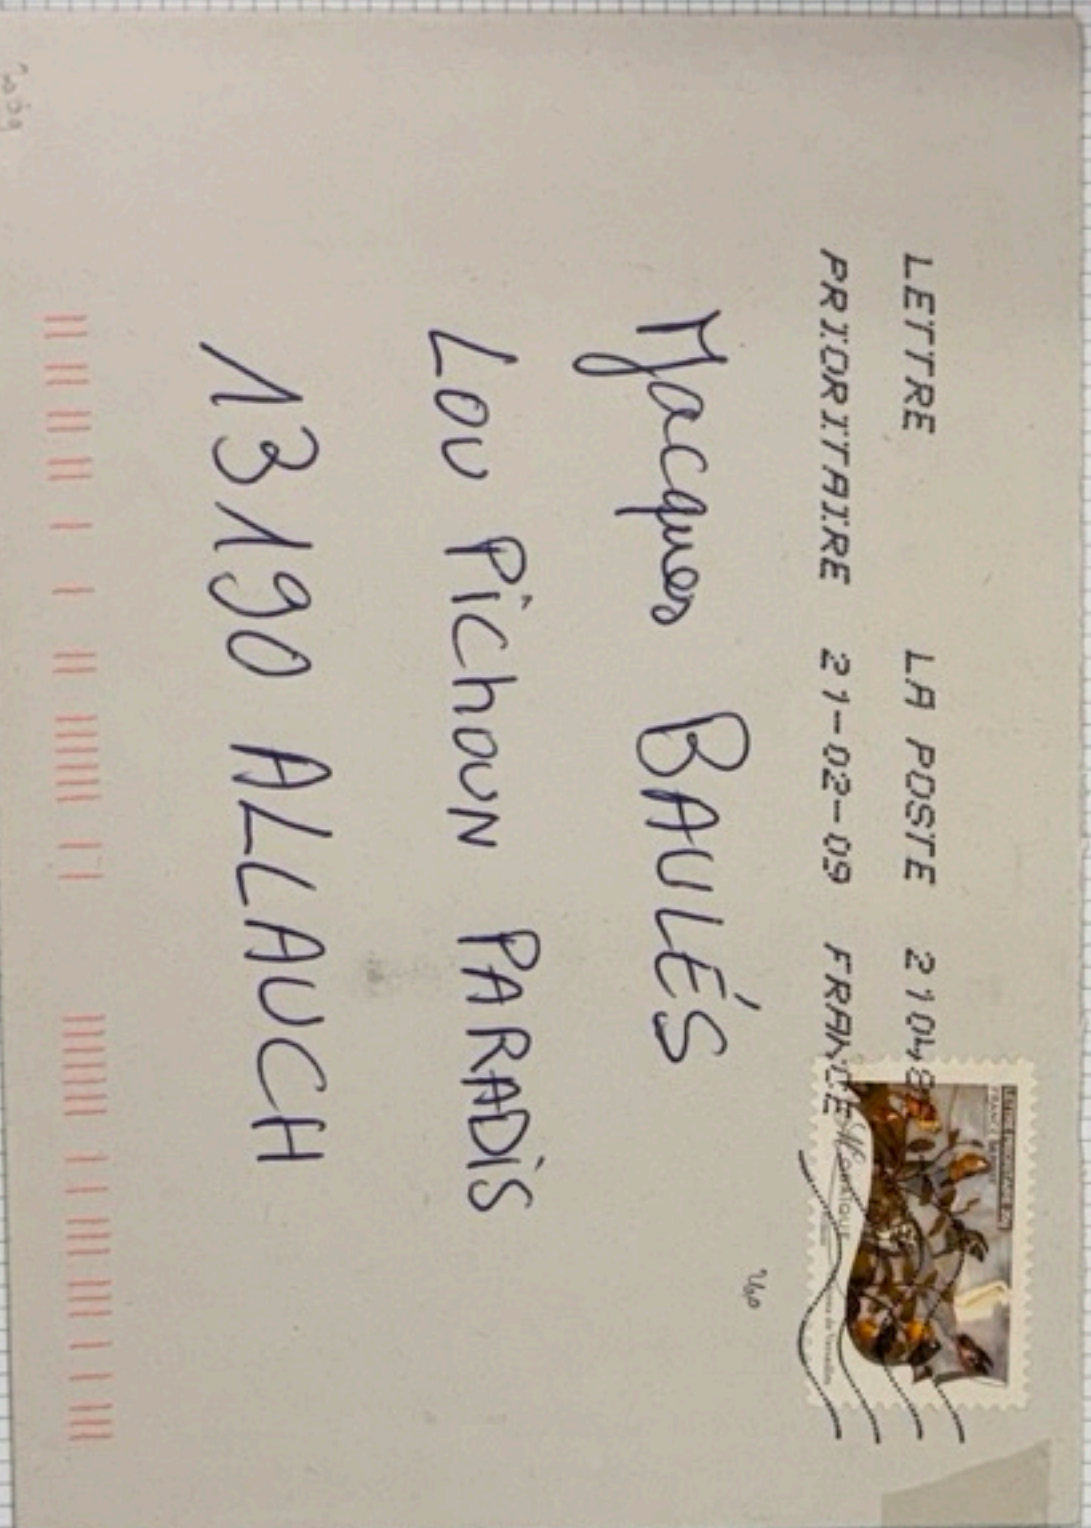 LETTRE LA POSTE 21048
PRIORITAIRE 21-02-09 FRANCE
Jacques BAULÉS
Lou Pichoun PARADIS
13190 ALLAUCH